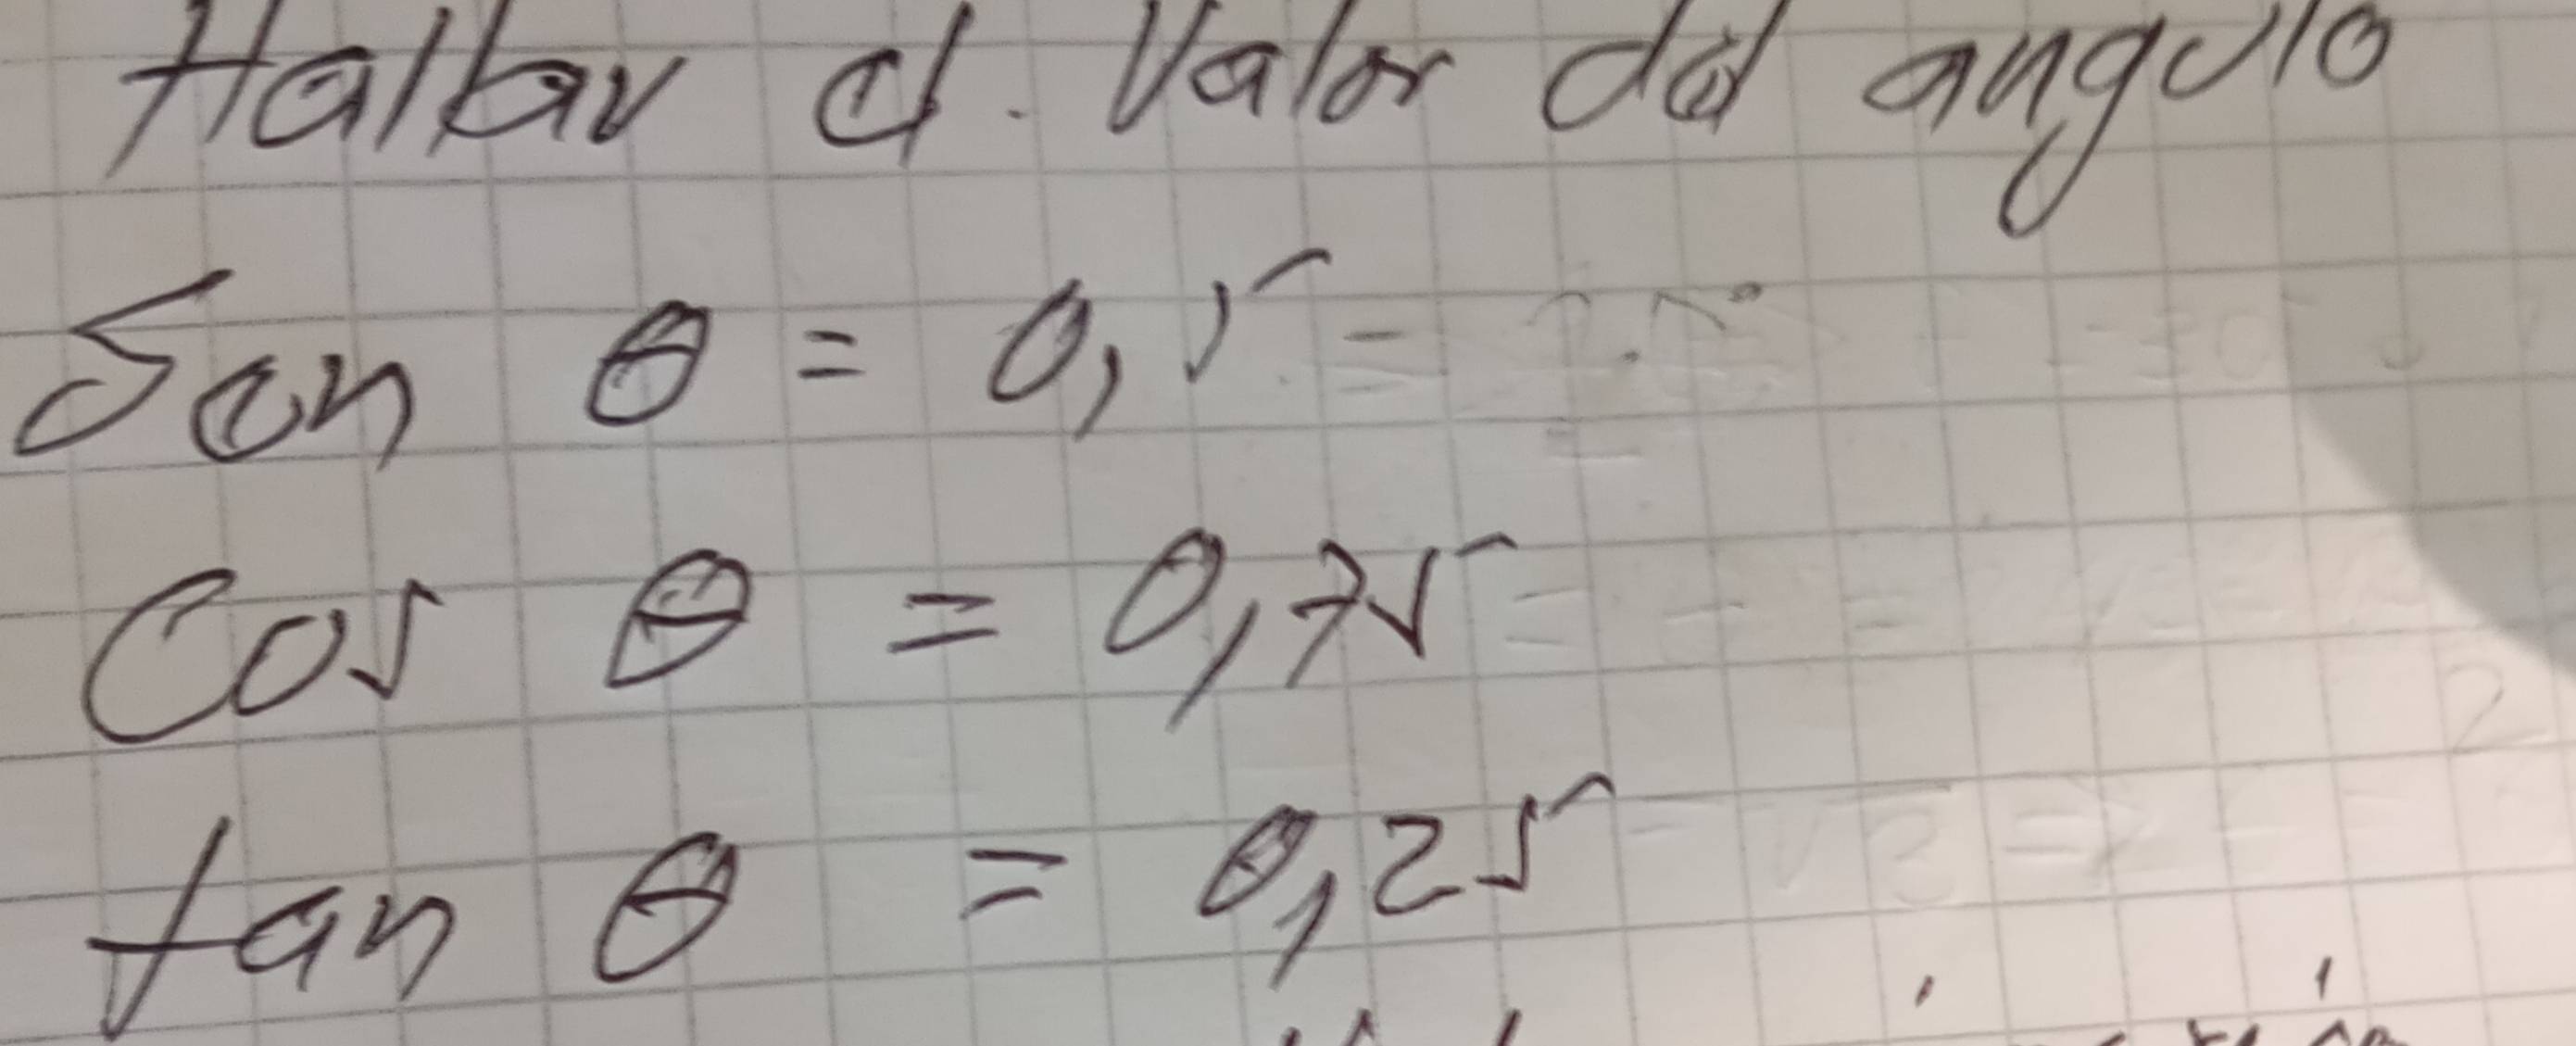 Hallar el Valor del angulo
Sen θ = 0,5
Cos θ = 0,75
tan θ = 0,25